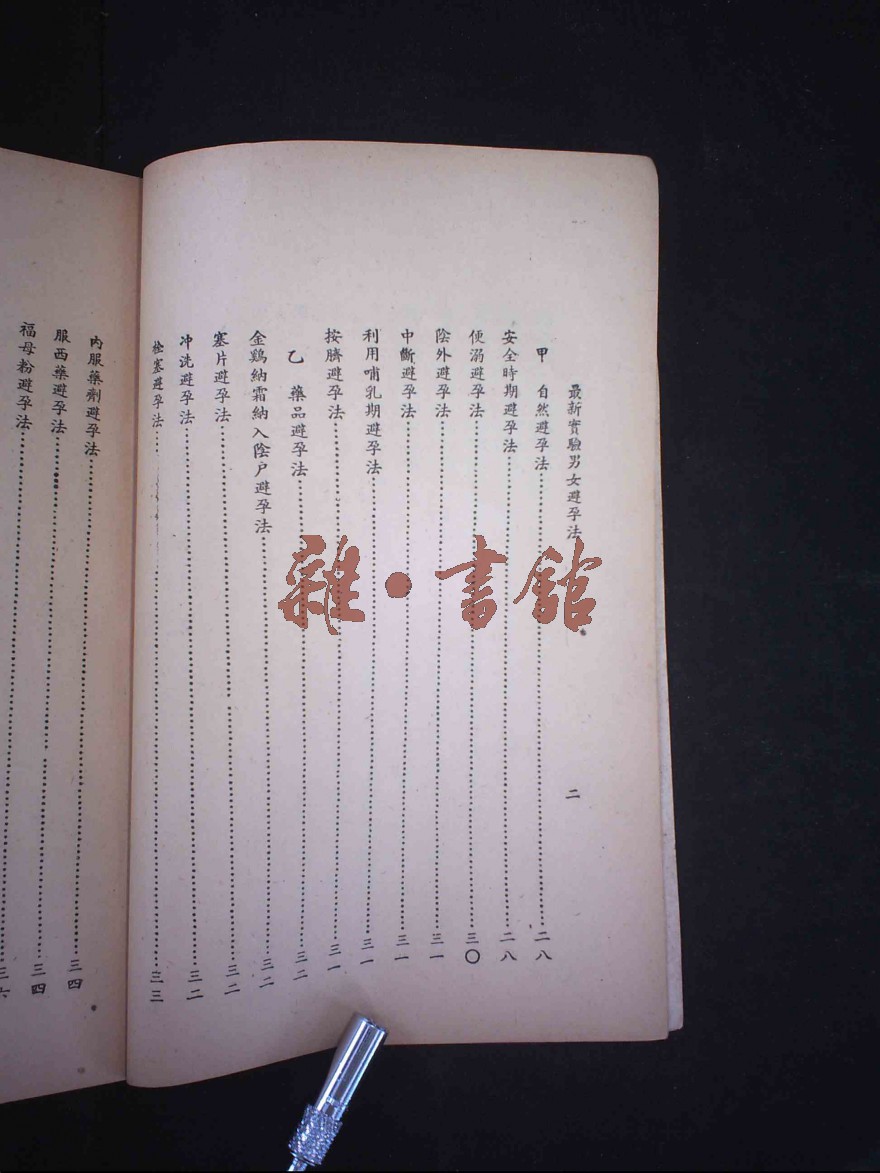 最新實驗男女避孕法
二
甲　自然避孕法……二八
安全時期避孕法……二八
便溺避孕法……三〇
陰外避孕法……三一
中斷避孕法……三一
利用哺乳期避孕法……三一
按臍避孕法……三一
乙　藥品避孕法……三二
金鷄納霜納入陰戶避孕法……三二
塞片避孕法……三二
冲洗避孕法……三二
栓塞避孕法……三三
內服藥劑避孕法……三四
服西藥避孕法……三四
福母粉避孕法……三六
雜·書館